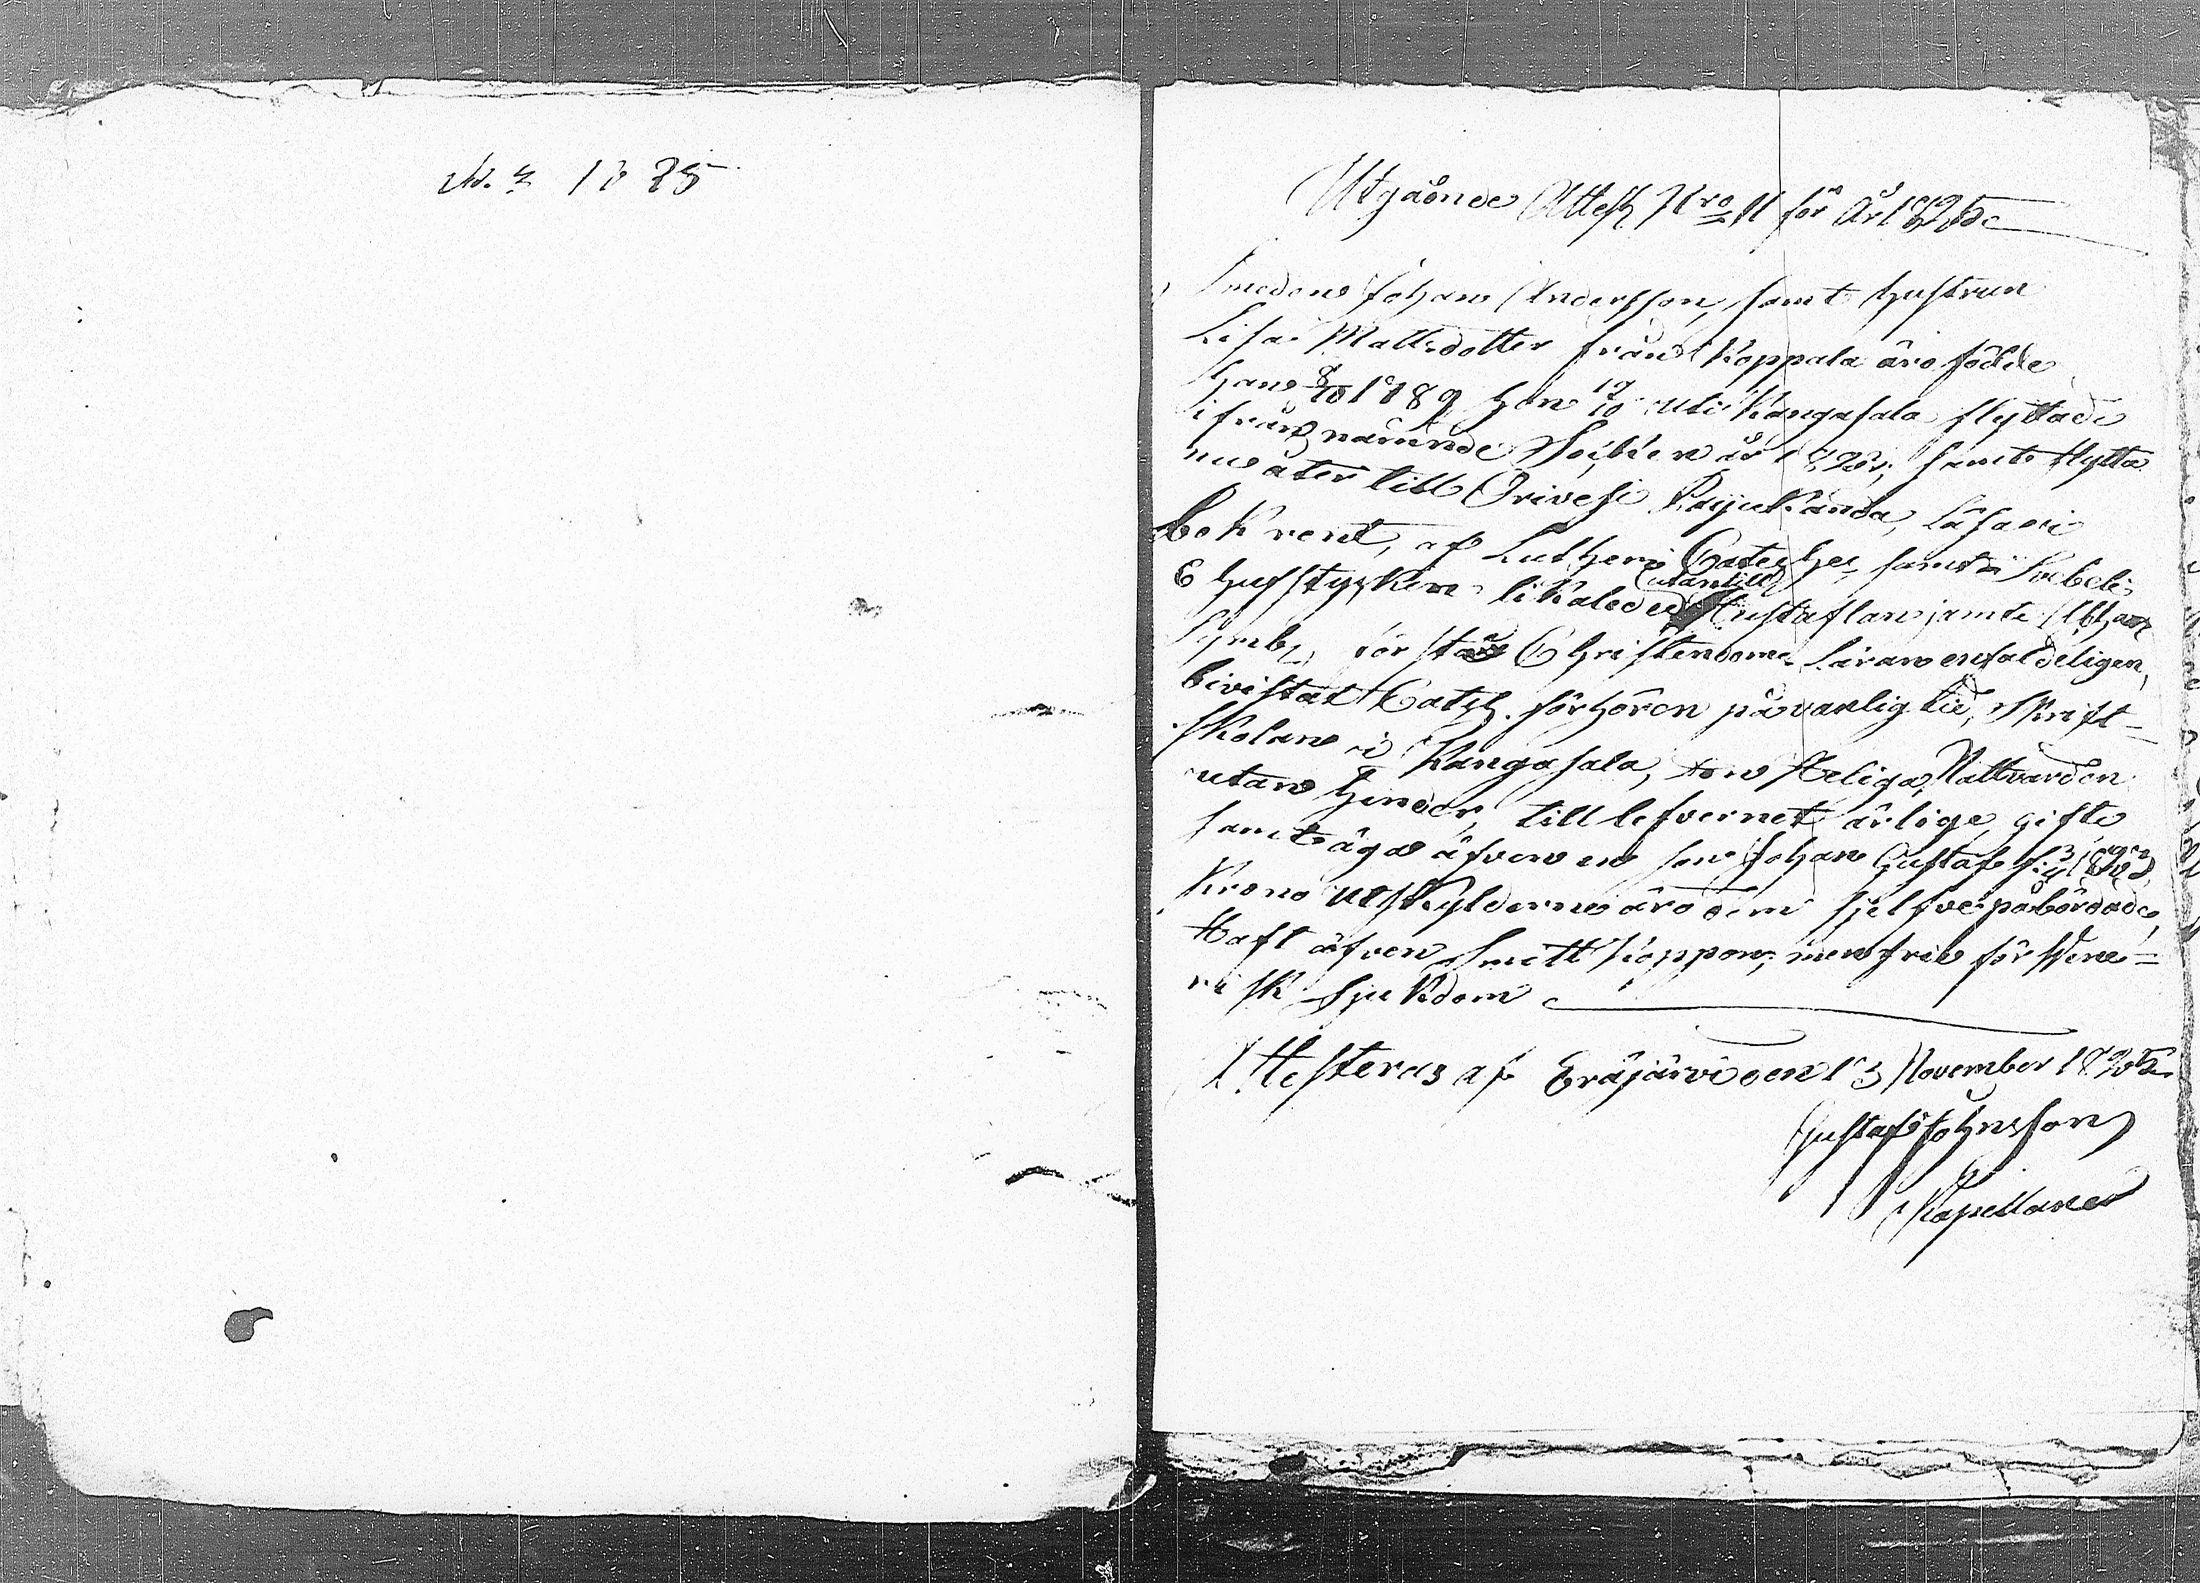 Utgående Attest Nro 11 för År 1825
Smeden Johan Andersson, samt hustrun
Lisa Mattsdotter från Koppala äro födde
han 8/10 1789 hon 19/10 uti Kangasala flyttade
ifrån nämnde Socken år samt flytta
nu åter till Orivesi läsa i
bok rent, af Lutheri Cateches samt Svebeli
utantill
C hufstycken likaledes Hustaflan jämte Athan
Symb. förstår Christendoms Läran enfaldeligen,
bivistat Catech. förhören på vanlig tid, Skrift-
skolan i Kangasala, den Heliga Nattvarden
utan hinder, till lefvernet ärlige, gifte
samt äga äfven en son Johan Gustaf
Krono utskylderne äro dem sjelfve påbördade,
Haft äfven Smitt koppor, men frie för Vene-
risk Sjukdom
Attesteras af Eräjärvi den 13 November 1825
Gustaf Johnsson
Kapellan